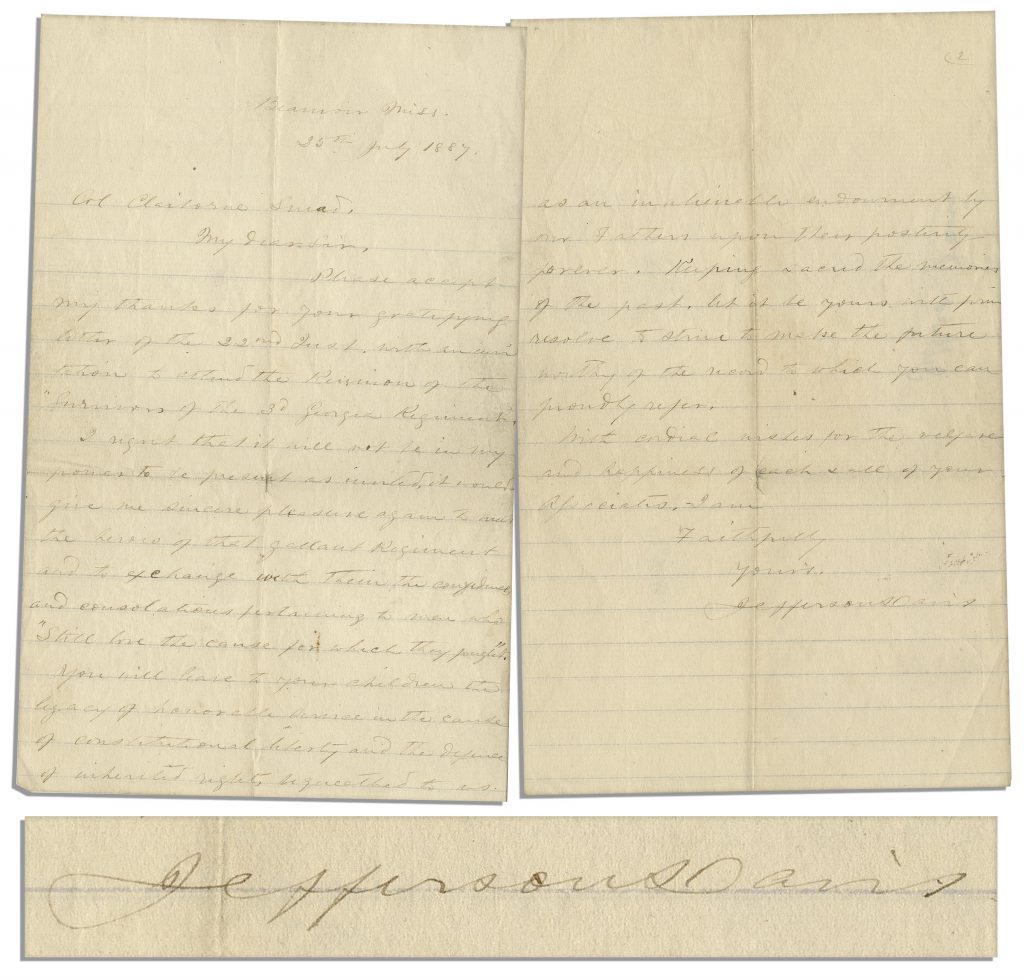 Beauvoir Miss.
25th July 1887.
Col Claiborne Snead,
My dear sir,
Please accept
my thanks for your gratifying
letter of the 22nd Inst. with an invi
tation to attend the Reunion of the
"Survivors of the 3d Georgia Regiment".
I regret that it will not be in my
power to be present as invited, it would
give me sincere pleasure again to meet
the heroes of that gallant Regiment
and to exchange with them the confidences
and consolations pertaining to men who
"Still love the cause for which they fought".
You will leave to your children the
legacy of honorable service in the cause
of constitutional liberty and the defence
of inherited rights, bequeathed to us
(2
as an inalienable endowment by
our Fathers upon their posterity
forever. Keeping sacred the memories
of the past, let it be yours with firm
resolve to strive to make the future
worthy of the record to which you can
proudly refer.
With cordial wishes for the welfare
and happiness of each & all of your
Associates, I am
Faithfully
Yours.
Jefferson Davis
Jefferson Davis